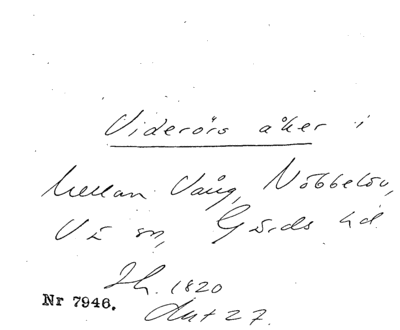 Viderörs åker i
Mellan Vång, Nöbbelöv,
Vä sn, Gärds hd.
Jh. 1820
Nr 7946.
Akt 27.